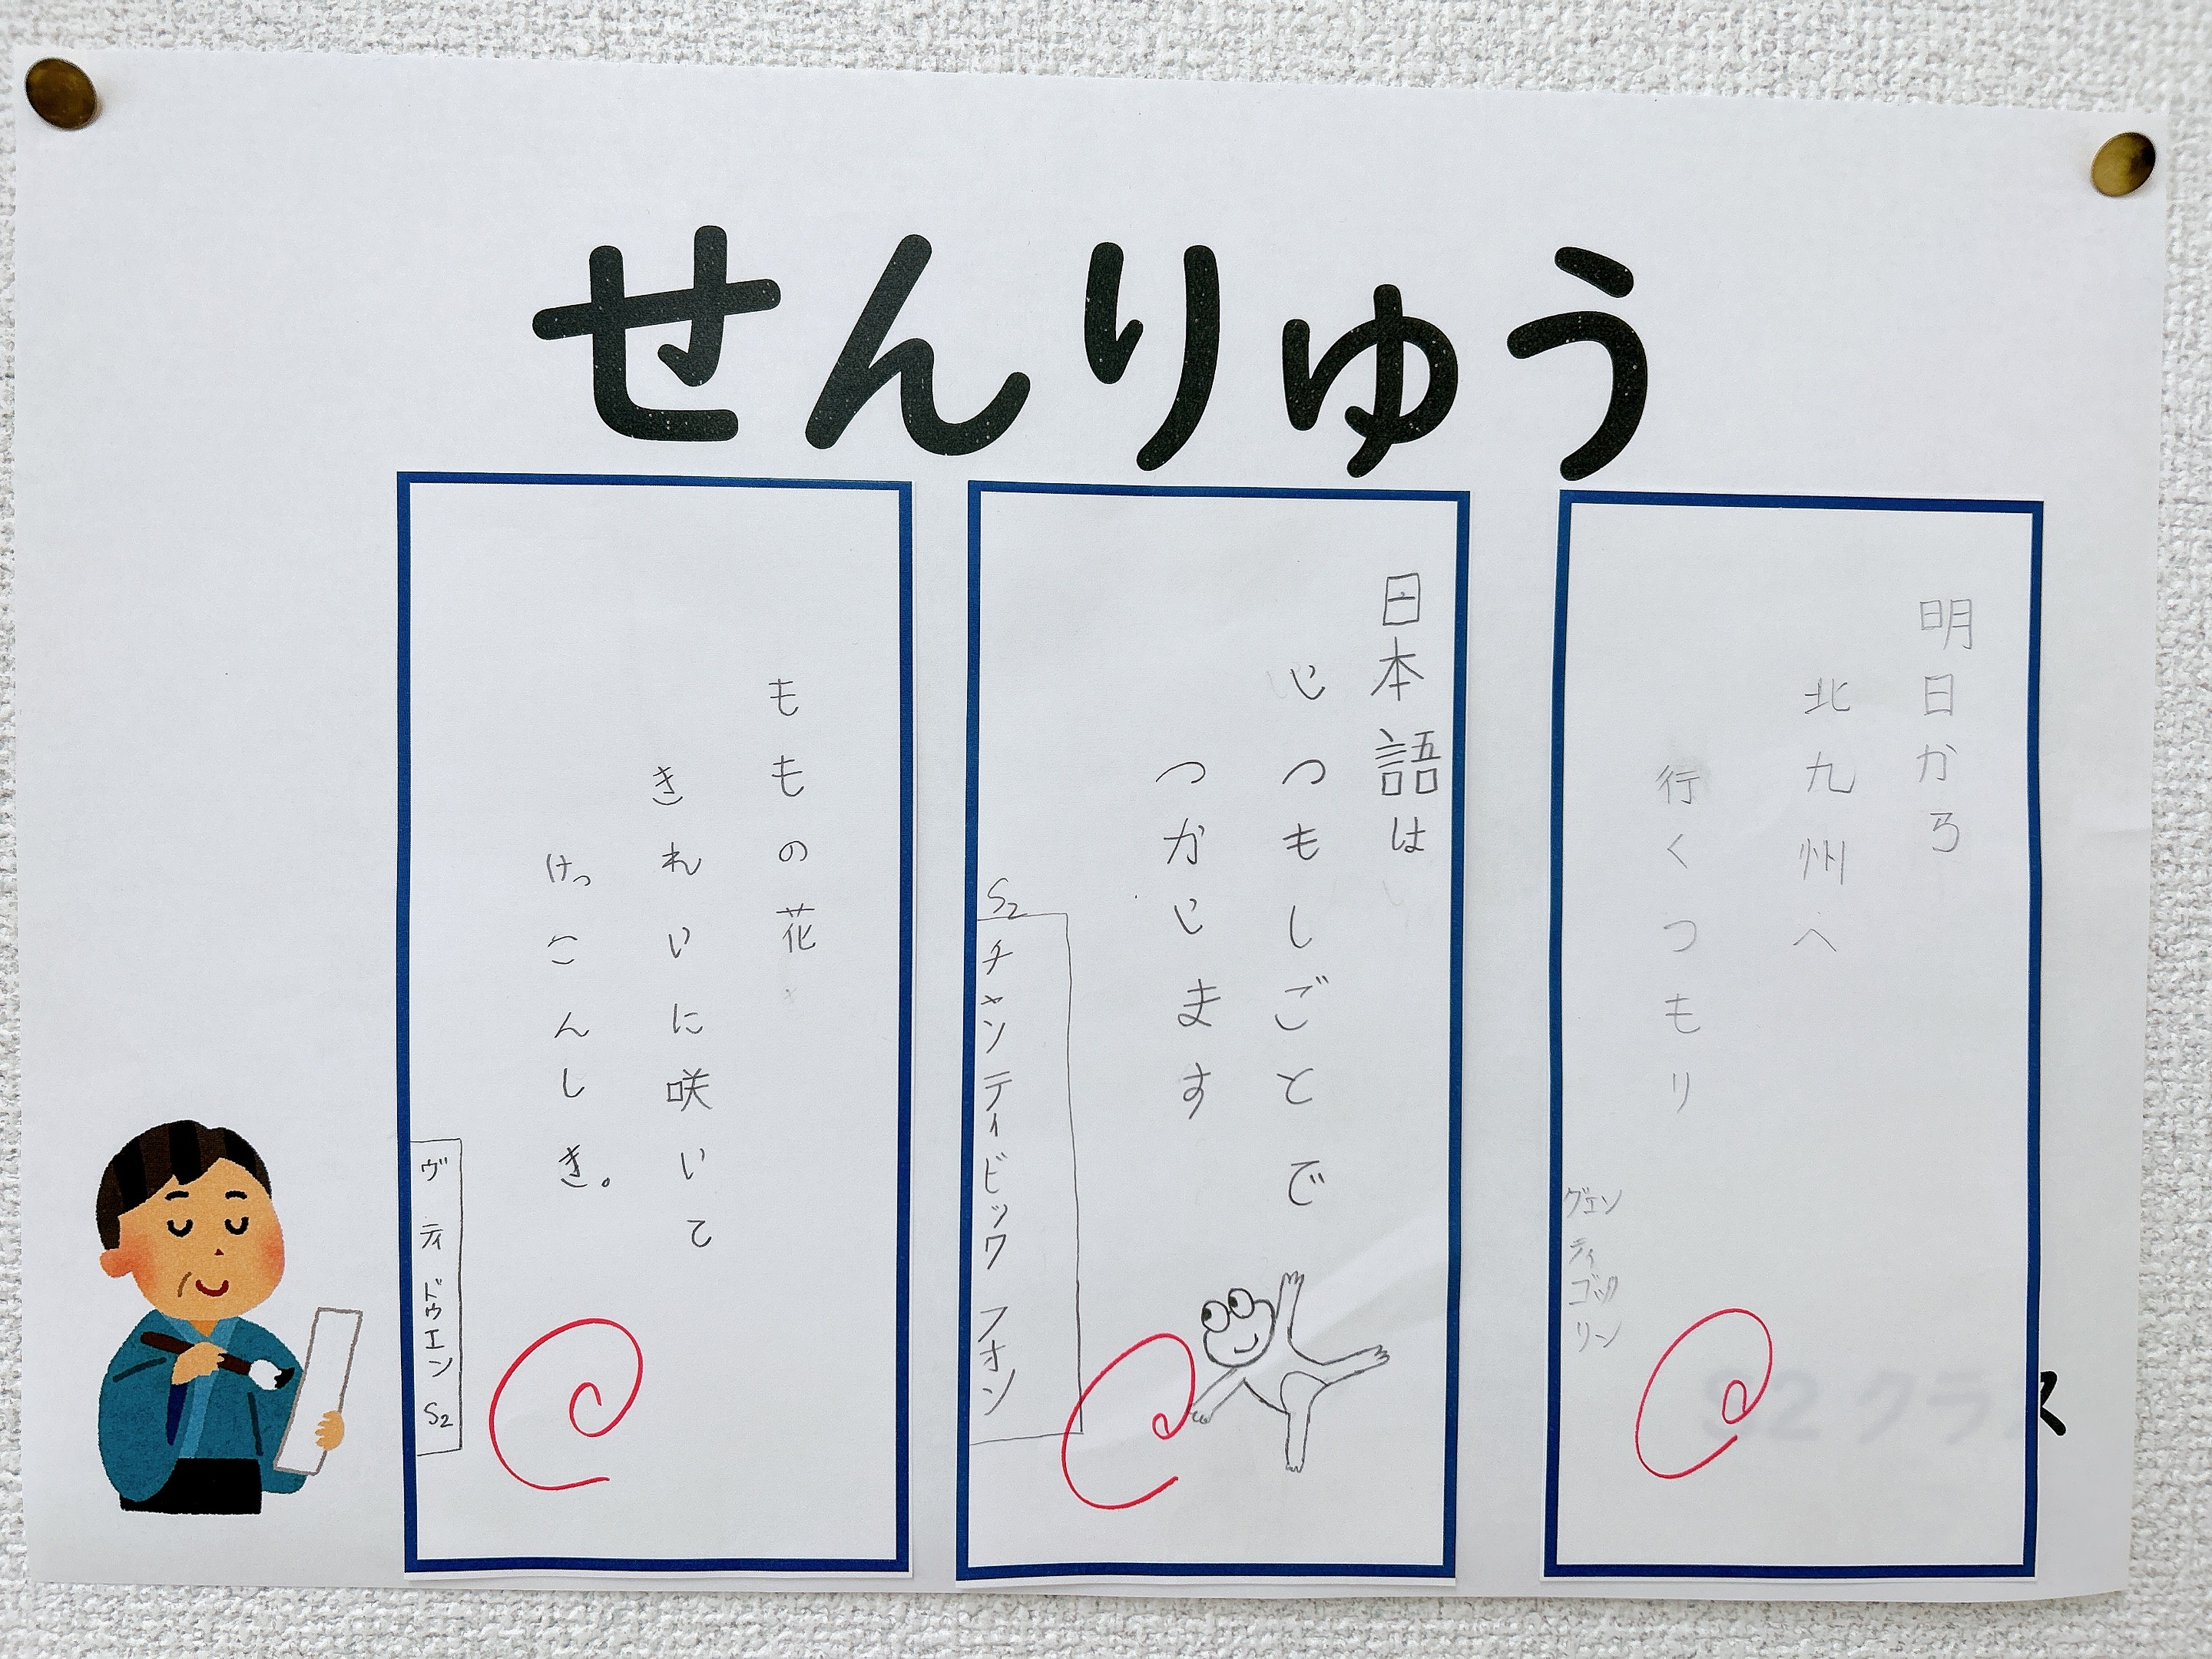 せんりゅう
明日から
北九州へ
行くつもり
グエン
ティ
ゴック
リン
S2クラス
日本語は
いつもしごとで
つかいます
S2
チャン ティ ビック フオン
ももの花
きれいに咲いて
けっこんしき。
ヴ ティ ドゥエン S2